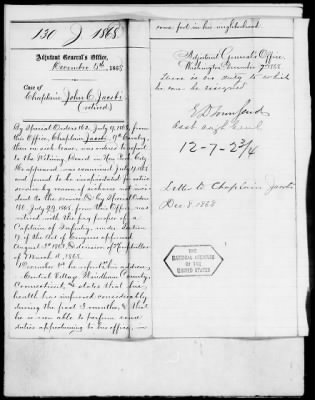 130 J 1868
Adjutant General's Office,
December 5th, 1868
Case of
Chaplain John C. Jacobi
(retired)
By Special Orders 160, July 9, 1868, from
this Office, Chaplain Jacobi, 9th Cavalry,
then on sick leave, was ordered to report
to the Retiring Board in New York City.
He was examined July 1868
and found to be incapacitated for active
service by reason of sickness not inci-
dent to the service & by Special Orders
180, July 29, 1868, from this Office, was
retired with the pay proper of a
Captain of Infantry, under Section
17, of the Act of Congress approved
August 3d 1861, & decision of Comptroller
of March 1868.
December 1st he reports his address,
Central Village, Windham County,
Connecticut, & states that his
health has improved considerably
during the past 3 months, & that
he is now able to perform some
duties appertaining to his office,
some post in his neighborhood
Adjutant General's Office,
Washington, December 7, 1868
There is no duty to which
he can be assigned
E D Townsend
Asst Adjt Genl
12-7-
Letter to Chaplain Jacobi
Dec 8 1868
THE
NATIONAL ARCHIVES
OF THE
UNITED STATES